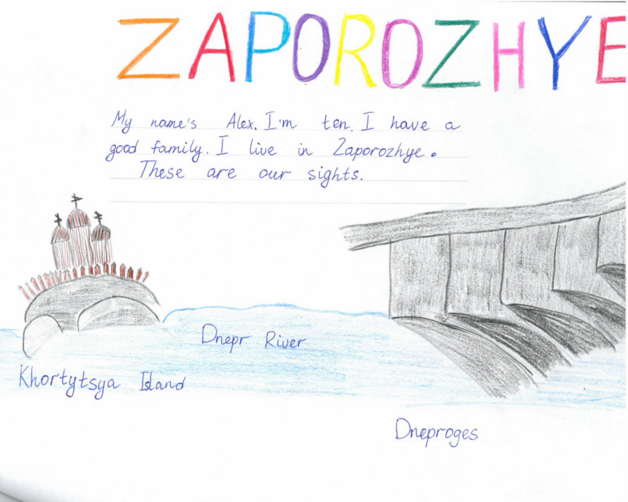 ZAPOROZHYE
My name's Alex. I'm ten. I have a
good family. I live in Zaporozhye.
These are our sights.
Dnepr River
Khortytsya Island
Dneproges